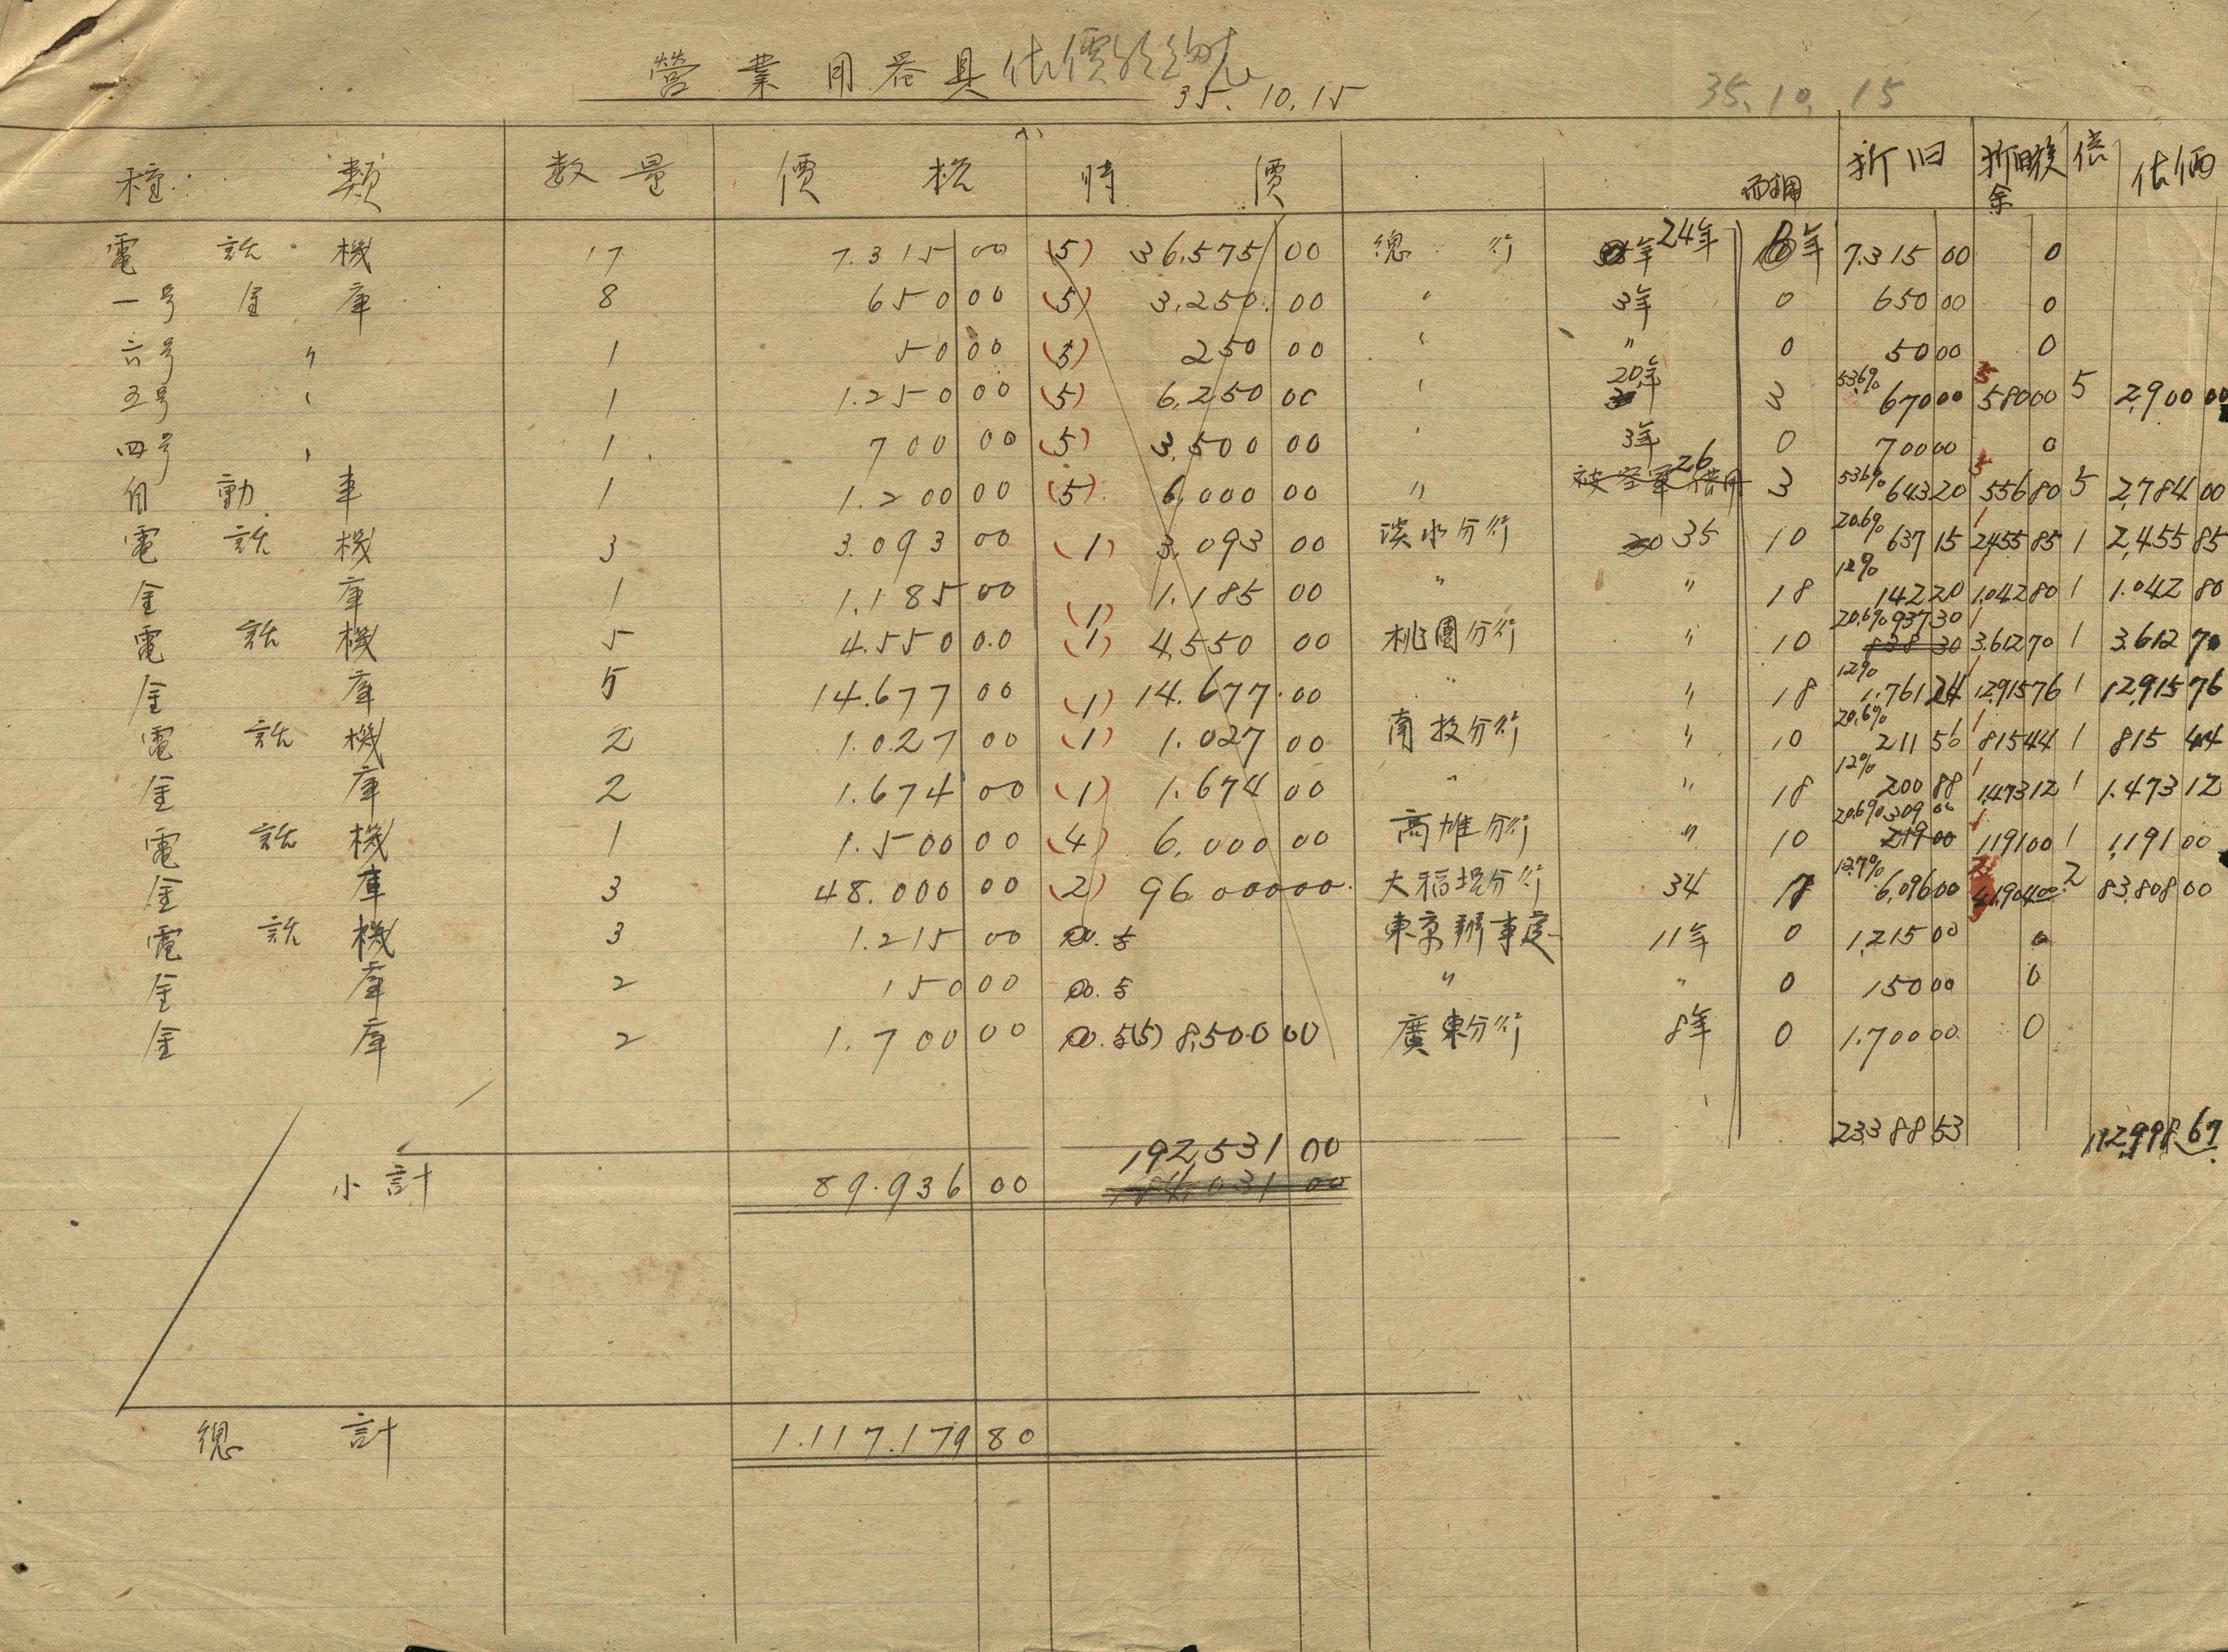 營業用器具估價
35.10.15 35.10.15
種類 数量 價格 時價 耐用 折旧 折旧後余 倍 估価
電話機 17 7.315 00 (5) 36,575 00 總行 24年 年 7.315 00 0
一号金庫 8 650 00 (5) 3,250.00 〃 3年 0 650 00 0
六号〃 1 50 00 (5) 250 00 〃 〃 0 50 00 0
五号〃 1 1.250 00 (5) 6,250 00 〃 20年 3 53.6% 670 00 5 580 00 5 2,900 00
四号〃 1 700 00 (5) 3,500 00 〃 3年 0 700 00 0
自動車 1 1.200 00 (5) 6,000 00 〃 26 3 53.6% 643 20 5 556 80 5 2,784 00
電話機 3 3.093 00 (1) 3,093 00 淡水分行 35 10 20.6% 637 15 1 2455 85 1 2,455 85
金庫 1 1.185 00 (1) 1.185 00 〃 〃 18 12% 142 20 1 1.042 80 1 1.042 80
電話機 5 4.550 0.0 (1) 4,550 00 桃園分行 〃 10 20.6% 937 30 838 30 1 3.612 70 1 3.612 70
金庫 5 14.677 00 (1) 14.677.00 〃 〃 18 12% 1.761 24 1 12915 76 1 12,915 76
電話機 2 1.027 00 (1) 1.027 00 南投分行 〃 10 20.6% 211 56 1 815 44 1 815 44
金庫 2 1.674 00 (1) 1.674 00 〃 〃 18 12% 200 88 1 1.473 12 1 1.473 12
電話機 1 1.500 00 (4) 6.000 00 高雄分行 〃 10 20.6% 309 00 219 00 1 1191 00 1 1,191 00
金庫 3 48.000 00 (2) 96.000 00 大稻埕分行 34 17 12.7% 6,096 00 41,904 00 2 83,808 00
電話機 3 1.215 00 東京辦事處 11年 0 1,215 00 0
金庫 2 150 00 〃 〃 0 150 00 0
金庫 2 1.700 00 (5) 8,500 00 廣東分行 8年 0 1.700 00 0
192,531 00 23388 53 112,998.67
小計 89.936 00 184,031 00
總計 1.117.179 80